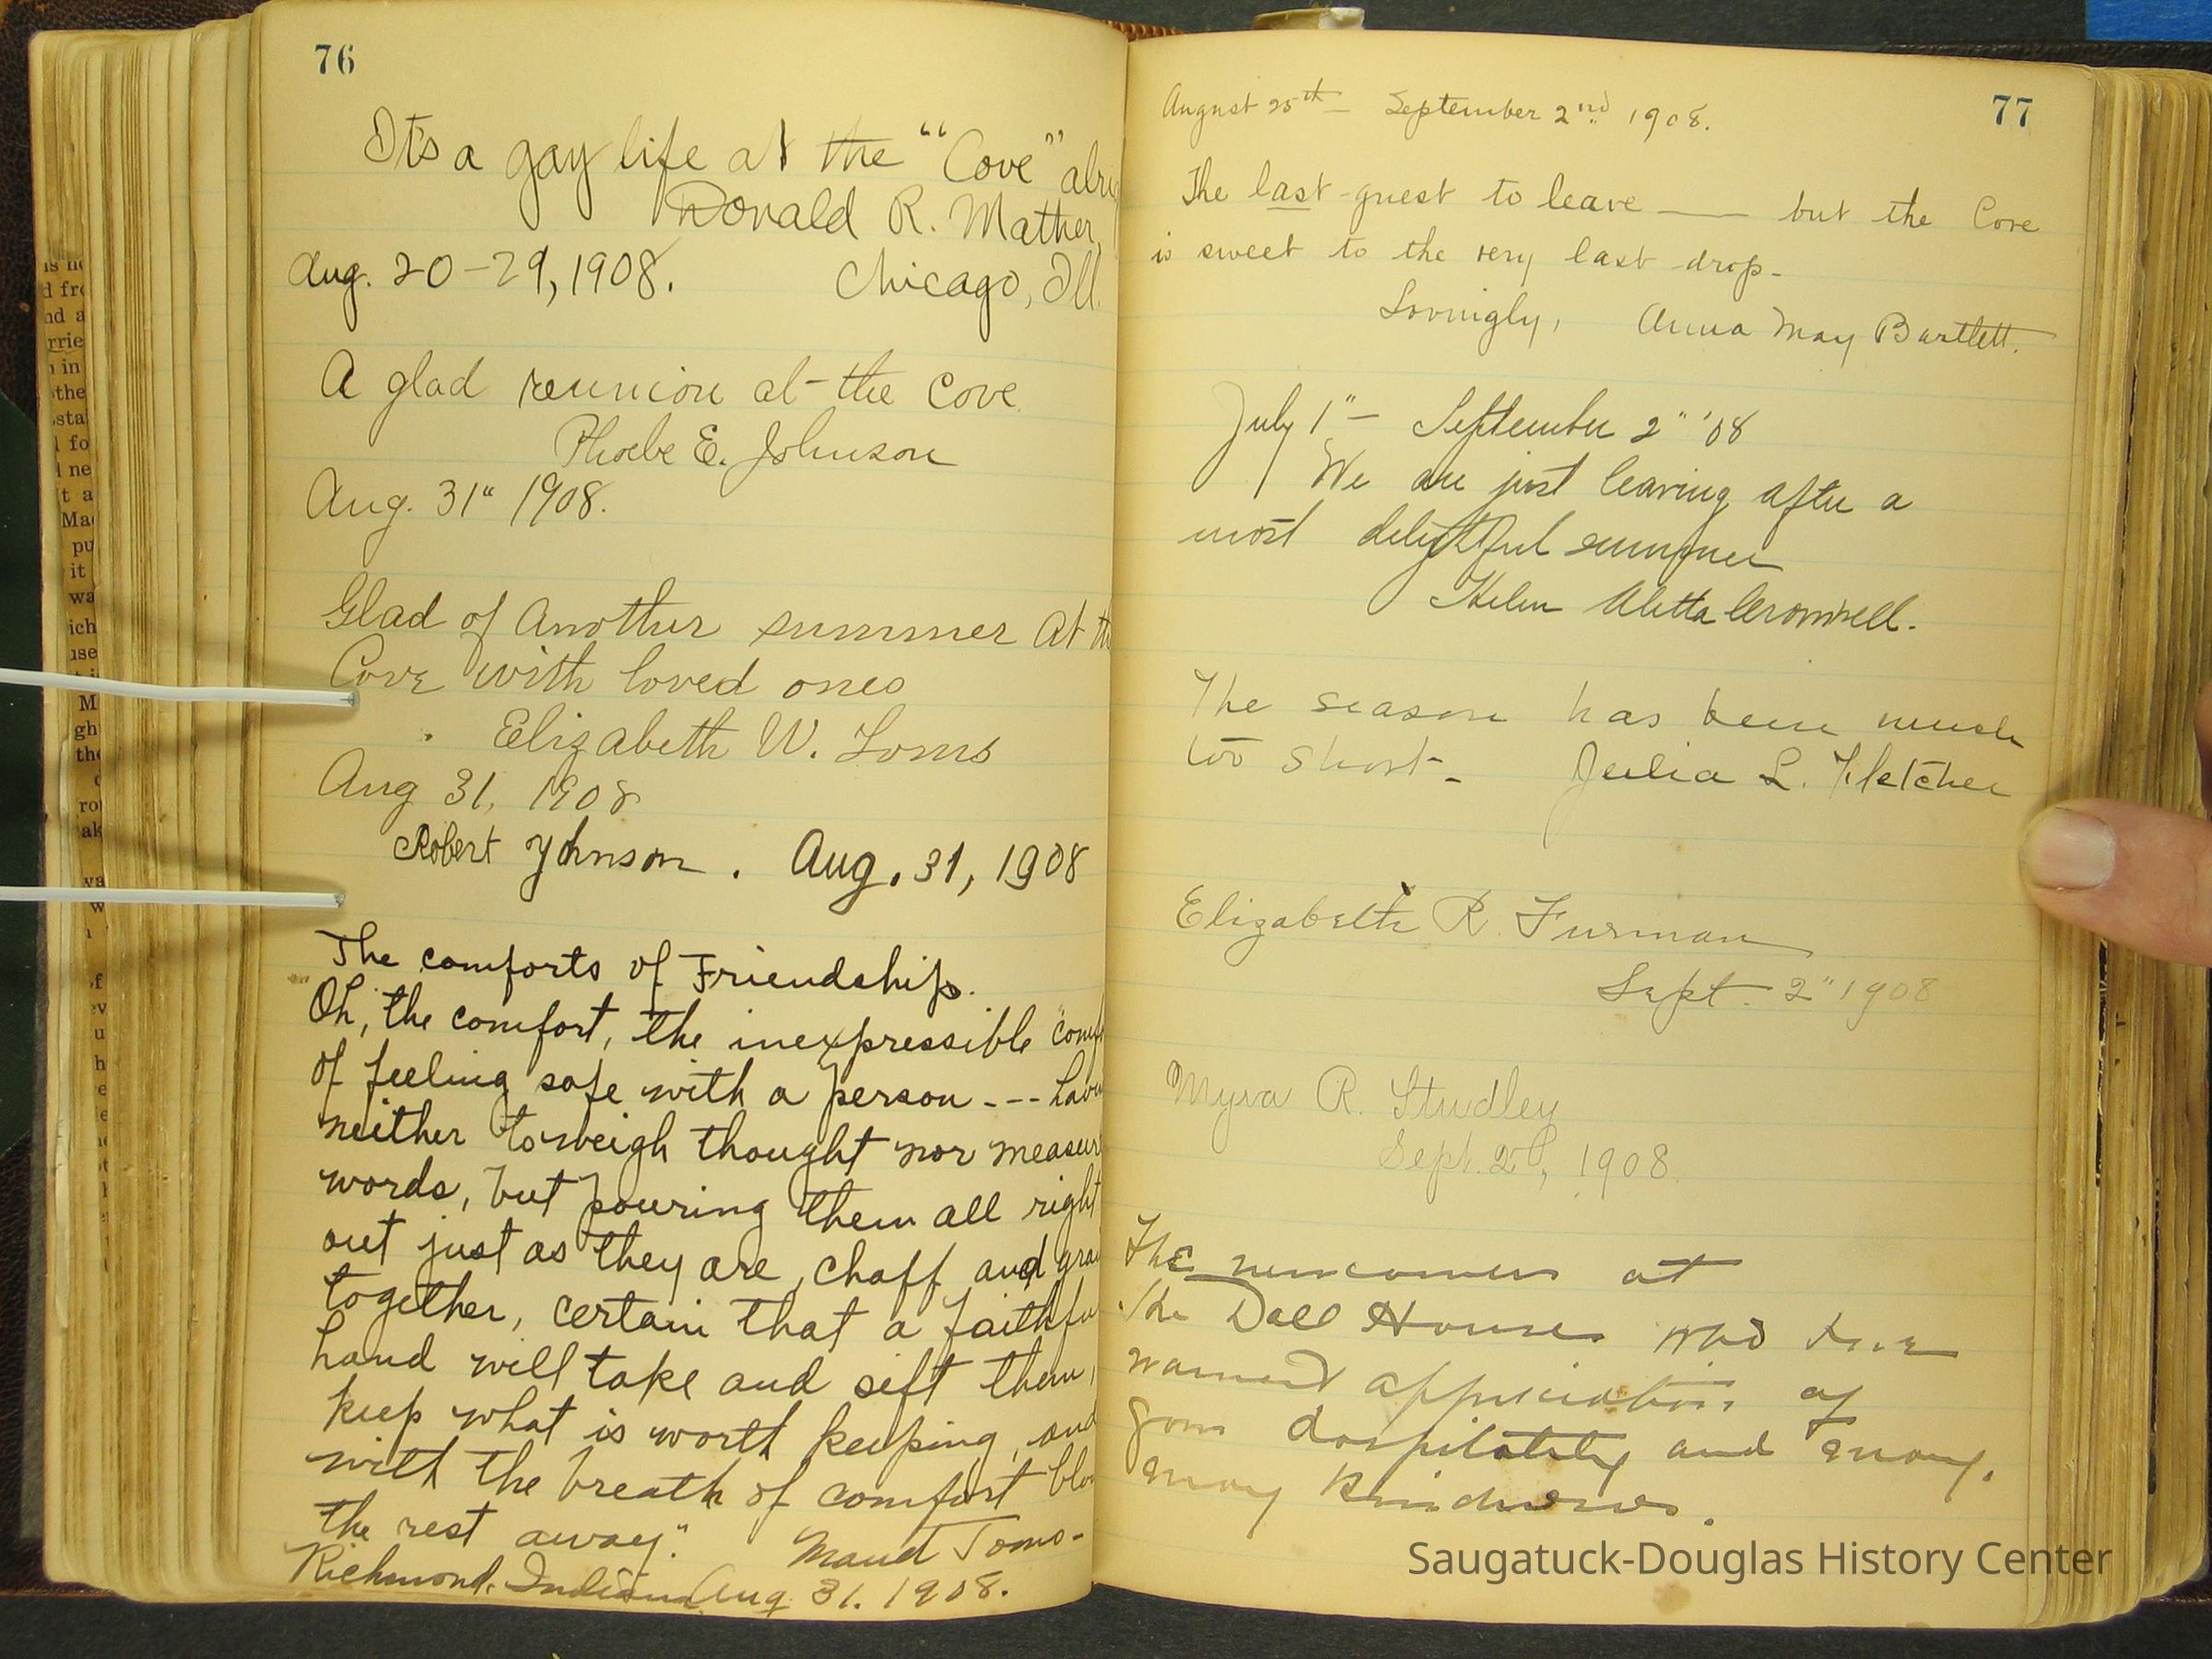 76
It's a gay life at the "Cove" alri
Donald R. Mather,
Aug. 20-29, 1908. Chicago, Ill.
A glad reunion at the Cove
Phoebe E. Johnson
Aug. 31" 1908.
Glad of another summer at the
Cove with loved ones
Elizabeth W.
Aug 31, 1908
Robert Johnson. Aug. 31, 1908
The comforts of Friendship.
Oh, the comfort, the inexpressible "comf
of feeling safe with a person --- havi
neither to weigh thought nor measur
words, but pouring them all right
out just as they are, chaff and grai
together, certain that a faithfu
hand will take and sift them,
keep what is worth keeping, and
with the breath of comfort blo
the rest away." Maud Toms-
Richmond, Indiana Aug 31. 1908.
77
August 25th - September 2nd 1908.
The last guest to leave — but the Cove
is sweet to the very last drop.
Lovingly, Anna May Bartlett.
July 1" - September 2" '08
We are just leaving after a
most delightful summer
Helen Aletta Cromwell.
The season has been much
too short. Julia L. Fletcher
Elizabeth R. Furman
Sept. 2" 1908
Myra R. Studley
Sept. 2d, 1908.
The newcomers at
The Doll House who have
warmest appreciation of
your hospitality and many,
many kindnesses.
Saugatuck-Douglas History Center